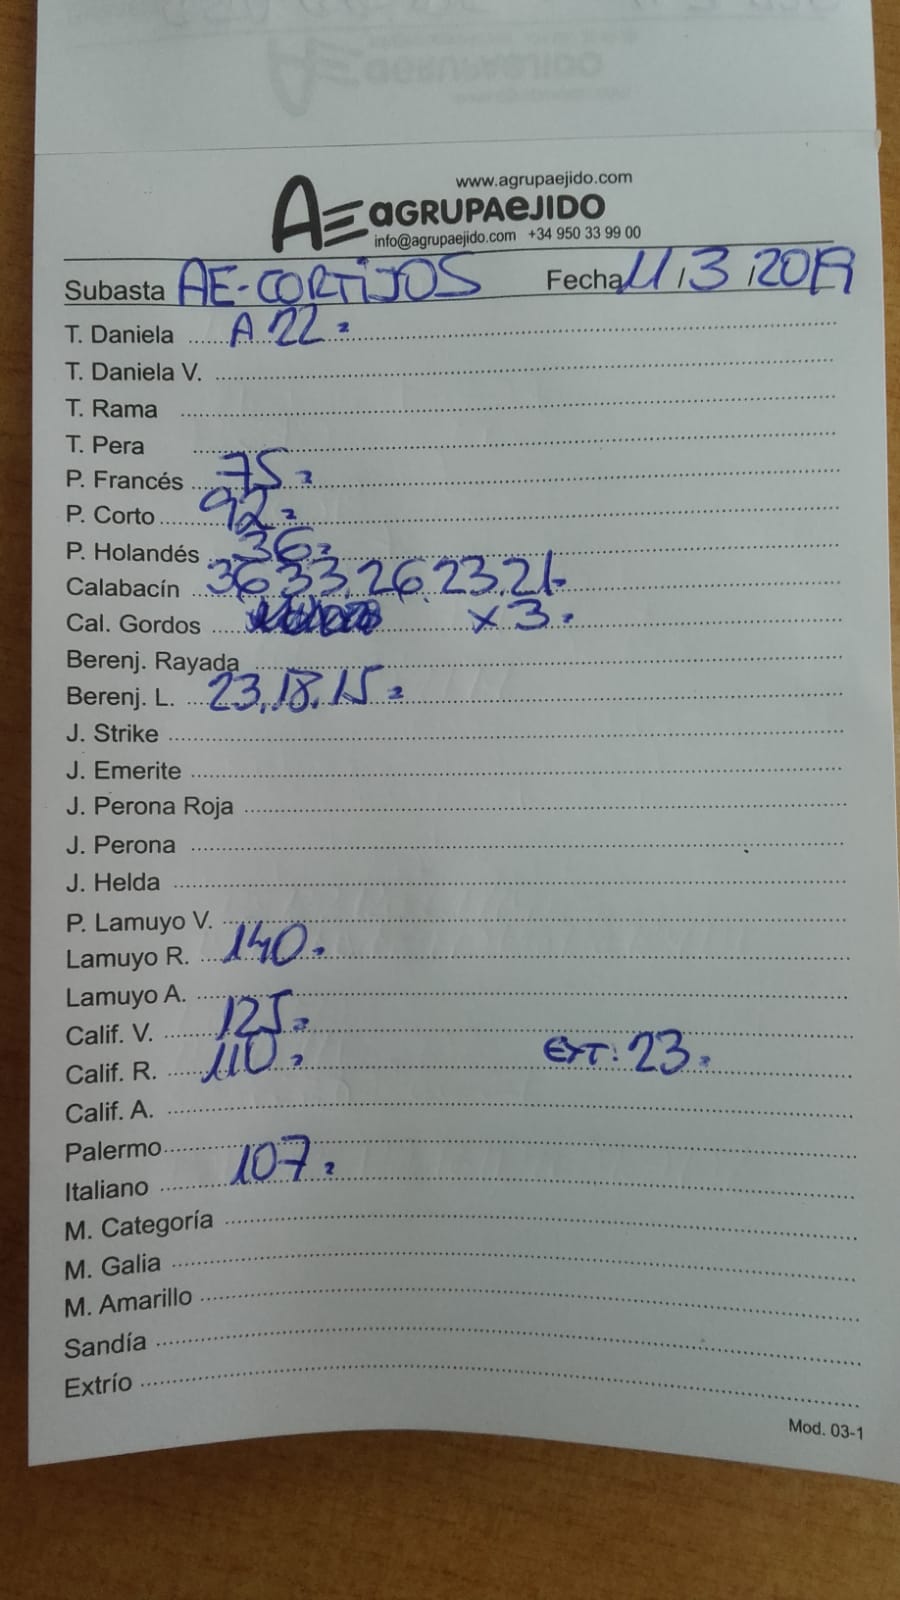 www.agrupaejido.com
AE aGRUPAeJIDO
info@agrupaejido.com +34 950 33 99 00
Subasta AE-CORTIJOS Fecha 11/3/2019
T. Daniela A 22=
T. Daniela V.
T. Rama
T. Pera
P. Francés 75=
P. Corto 92=
P. Holandés 36=
Calabacín 36 33, 26, 23, 21=
Cal. Gordos x 3=
Berenj. Rayada
Berenj. L. 23, 18, 15=
J. Strike
J. Emerite
J. Perona Roja
J. Perona
J. Helda
P. Lamuyo V.
Lamuyo R. 140=
Lamuyo A.
Calif. V. 125=
Calif. R. 110= EXT: 23=
Calif. A.
Palermo
Italiano 107=
M. Categoría
M. Galia
M. Amarillo
Sandía
Extrío
Mod. 03-1